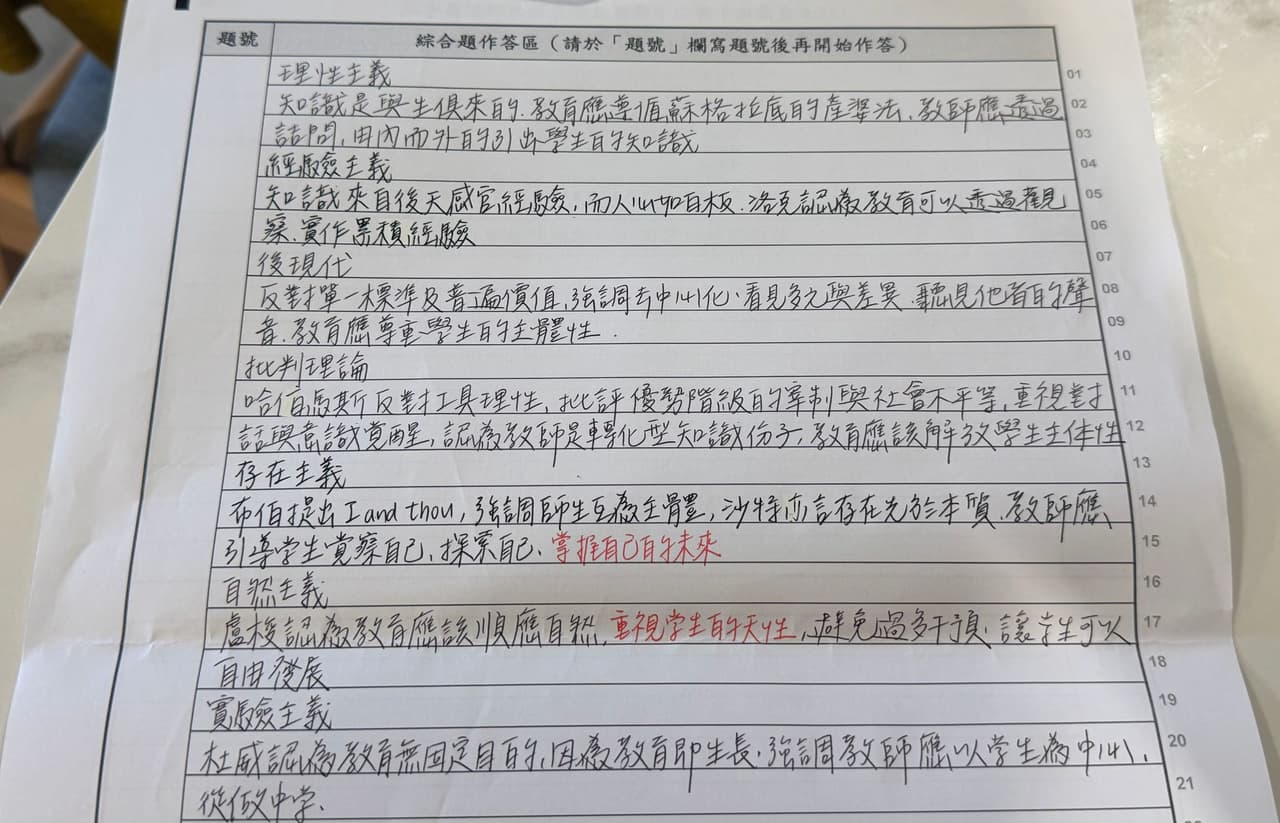 題號 綜合題作答區（請於「題號」欄寫題號後再開始作答）
理性主義 01
知識是與生俱來的.教育應遵循蘇格拉底的產婆法,教師應透過 02
詰問,由內而外的引出學生的知識 03
經驗主義 04
知識來自後天感官經驗,而人心如白板.洛克認為教育可以透過觀 05
察.實作累積經驗 06
後現代 07
反對單一標準及普遍價值,強調去中心化、看見多元與差異.聽見他者的聲 08
音.教育應尊重學生的主體性. 09
批判理論 10
哈伯馬斯反對工具理性,批評優勢階級的宰制與社會不平等,重視對 11
話與意識覚醒,認為教師是轉化型知識份子,教育應該解放學生主体性 12
存在主義 13
布伯提出I and thou,強調師生互為主體,沙特亦言存在先於本質.教師應 14
引導学生覚察自己,探索自己、掌握自己的未來 15
自然主義 16
盧梭認為教育應該順應自然,重視学生的天性,避免過多干預.讓学生可以 17
自由發展 18
實驗主義 19
杜威認為教育無固定目的,因為教育即生長.強調教師應以学生為中心, 20
從做中学. 21